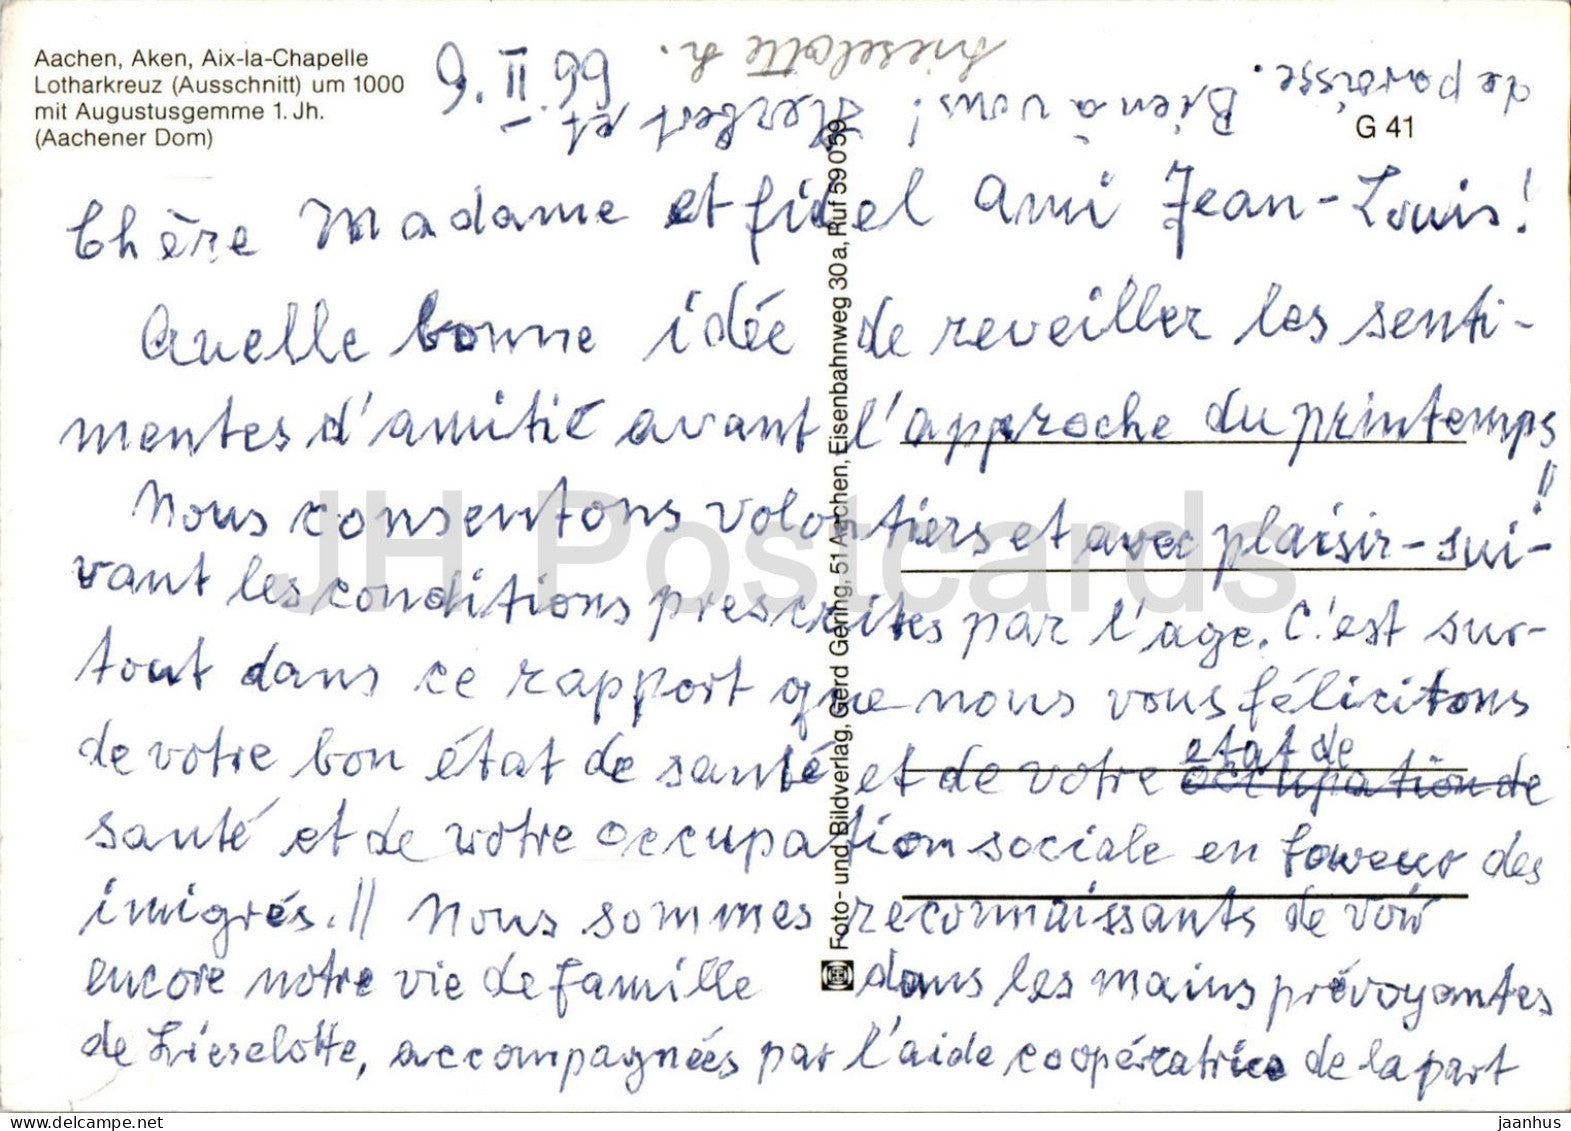 Aachen, Aken, Aix-la-Chapelle
Lotharkreuz (Ausschnitt) um 1000
mit Augustusgemme 1. Jh.
(Aachener Dom)
G 41
Chère Madame et fidel Ami Jean-Louis!
Quelle bonne idée de reveiller les senti-
mentes d'amitié avant l'approche du printemps!!
Nous consentons volontiers et avec plaisir - sui-
vant les conditions prescrites par l'age. C'est sur-
tout dans ce rapport que nous vous félicitons
de votre bon état de santé et de votre occupation de
etat de
santé et de votre occupation sociale en faveur des
imigrés. || Nous sommes reconnaissants de voir
encore notre vie de famille dans les mains prévoyantes
de Lieselotte, accompagnées par l'aide coopératrice de la part
de paroisse. Bien à vous! Herbert et
Lieselotte h.
6. II 99
Foto- und Bildverlag, Gerd Gering, 51 Aachen, Eisenbahnweg 30 a, Ruf 59059
JH Postcards
jaanhus
www.delcampe.net